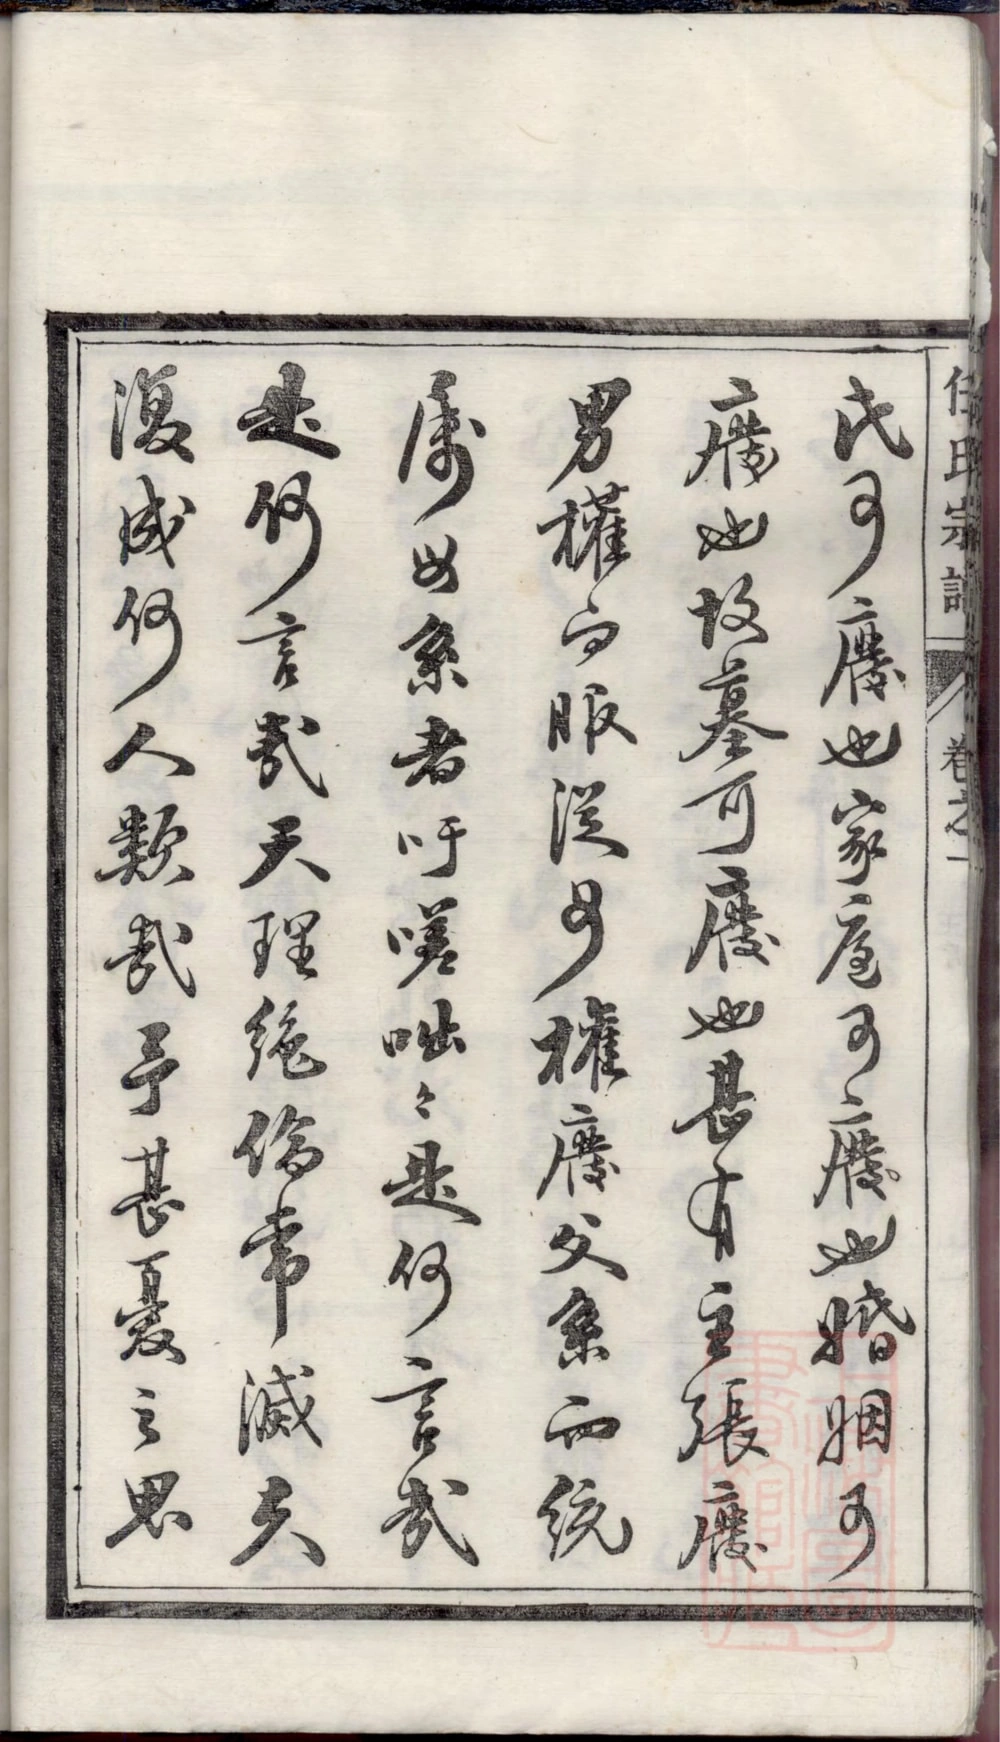 任氏宗譜 卷之一
氏可廢也家庭可廢也婚姻可
廢也坟墓可廢也甚有主張廢
男權而服從女權廢父系而統
屬母系者吁嗟咄々是何言哉
是何言哉天理絶倫常滅夫
復成何人類哉予甚憂之思